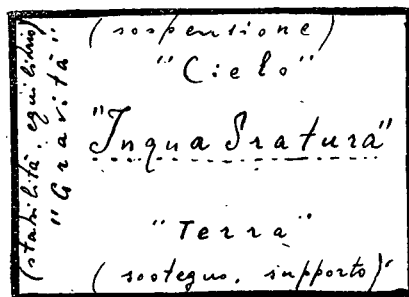 (sospensione)
"Cielo"
"InquaDratura"
"Terra"
(sostegno, supporto)
"Gravità"
(stabilità, equilibrio)